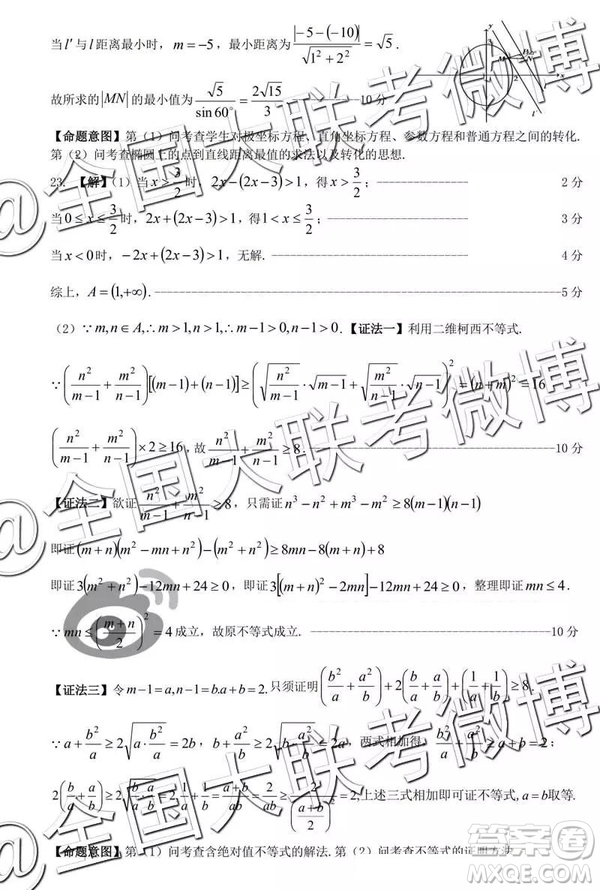 当 l′ 与 l 距离最小时，m = −5，最小距离为 |−5−(−10)| / √(1²+2²) = √5．
故所求的 |MN| 的最小值为 √5 / sin60° = 2√15 / 3 ----10 分
【命题意图】第（1）问考查学生对极坐标方程、直角坐标方程、参数方程和普通方程之间的转化．
第（2）问考查椭圆上的点到直线距离最值的求法以及转化的思想．
23. 【解】（1）当 x > 3/2 时，2x − (2x − 3) > 1，得 x > 3/2； ----2 分
当 0 ≤ x ≤ 3/2 时，2x + (2x − 3) > 1，得 1 < x ≤ 3/2； ----3 分
当 x < 0 时，−2x + (2x − 3) > 1，无解． ----4 分
综上，A = (1, +∞)． ----5 分
（2）∵ m, n ∈ A, ∴ m > 1, n > 1, ∴ m − 1 > 0, n − 1 > 0．【证法一】利用二维柯西不等式．
∵ (n²/(m−1) + m²/(n−1))[(m−1) + (n−1)] ≥ (√(n²/(m−1)) · √(m−1) + √(m²/(n−1)) · √(n−1))² = (n + m)² = 16
(n²/(m−1) + m²/(n−1)) × 2 ≥ 16，故 n²/(m−1) + m²/(n−1) ≥ 8． ----10 分
【证法二】欲证 n²/(m−1) + m²/(n−1) ≥ 8，只需证 n³ − n² + m³ − m² ≥ 8(m−1)(n−1)
即证 (m+n)(m² − mn + n²) − (m² + n²) ≥ 8mn − 8(m+n) + 8
即证 3(m² + n²) − 12mn + 24 ≥ 0，即证 3[(m+n)² − 2mn] − 12mn + 24 ≥ 0，整理即证 mn ≤ 4．
∵ mn ≤ ((m+n)/2)² = 4 成立，故原不等式成立． ----10 分
【证法三】令 m − 1 = a, n − 1 = b. a + b = 2. 只须证明 (b²/a + a²/b) + 2(b/a + a/b) + (1/a + 1/b) ≥ 8．
∵ a + b²/a ≥ 2√(a · b²/a) = 2b，b + a²/b ≥ 2√(b · a²/b) = 2a，两式相加得：b²/a + a²/b ≥ a + b = 2；
2(b/a + a/b) ≥ 2·2√(b/a · a/b) = 4；1/a + 1/b ≥ 2√(1/a · 1/b) ≥ 2/((a+b)/2) = 2，上述三式相加即可证不等式，a = b 取等．
【命题意图】第（1）问考查含绝对值不等式的解法．第（2）问考查不等式的证明方法．
@全国大联考微博
@全国大联考微博
@全国大联考微博
答案圈